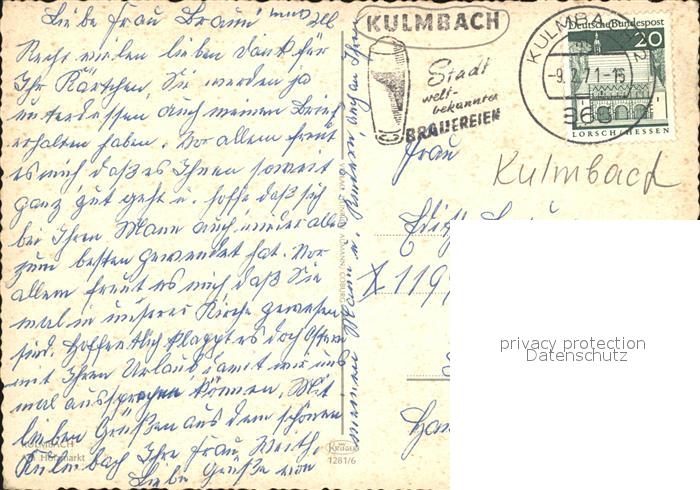 Liebe Frau Braun
Recht vielen lieben Dank für
Ihr Kärtchen. Sie werden ja
unterdessen auch meinen Brief
erhalten haben. Vor allem freut
es mich daß es Ihnen soweit
ganz gut geht u. hoffe daß sich
bei Ihrem Mann auch wieder alles
zum besten gewendet hat. Vor
allem freut es mich daß Sie
mal in unserer Kirche gewesen
sind. Hoffentlich klappt es doch Ostern
mit Ihrem Urlaub damit wir uns
mal aussprechen können. Mit
lieben Grüßen aus dem schönen
Kulmbach Ihre Frau
Liebe Grüße von
meinem Mann u. Kindern, auch an Ihren
KULMBACH
Am Holzmarkt
Krüger
1281/6
KULMBACH
Stadt
welt-
bekannter
BRAUEREIEN
KULMBACH 2
-9.2.71-15
8650
Deutsche Bundespost
20
LORSCH/HESSEN
Frau
Kulmbach
privacy protection
Datenschutz